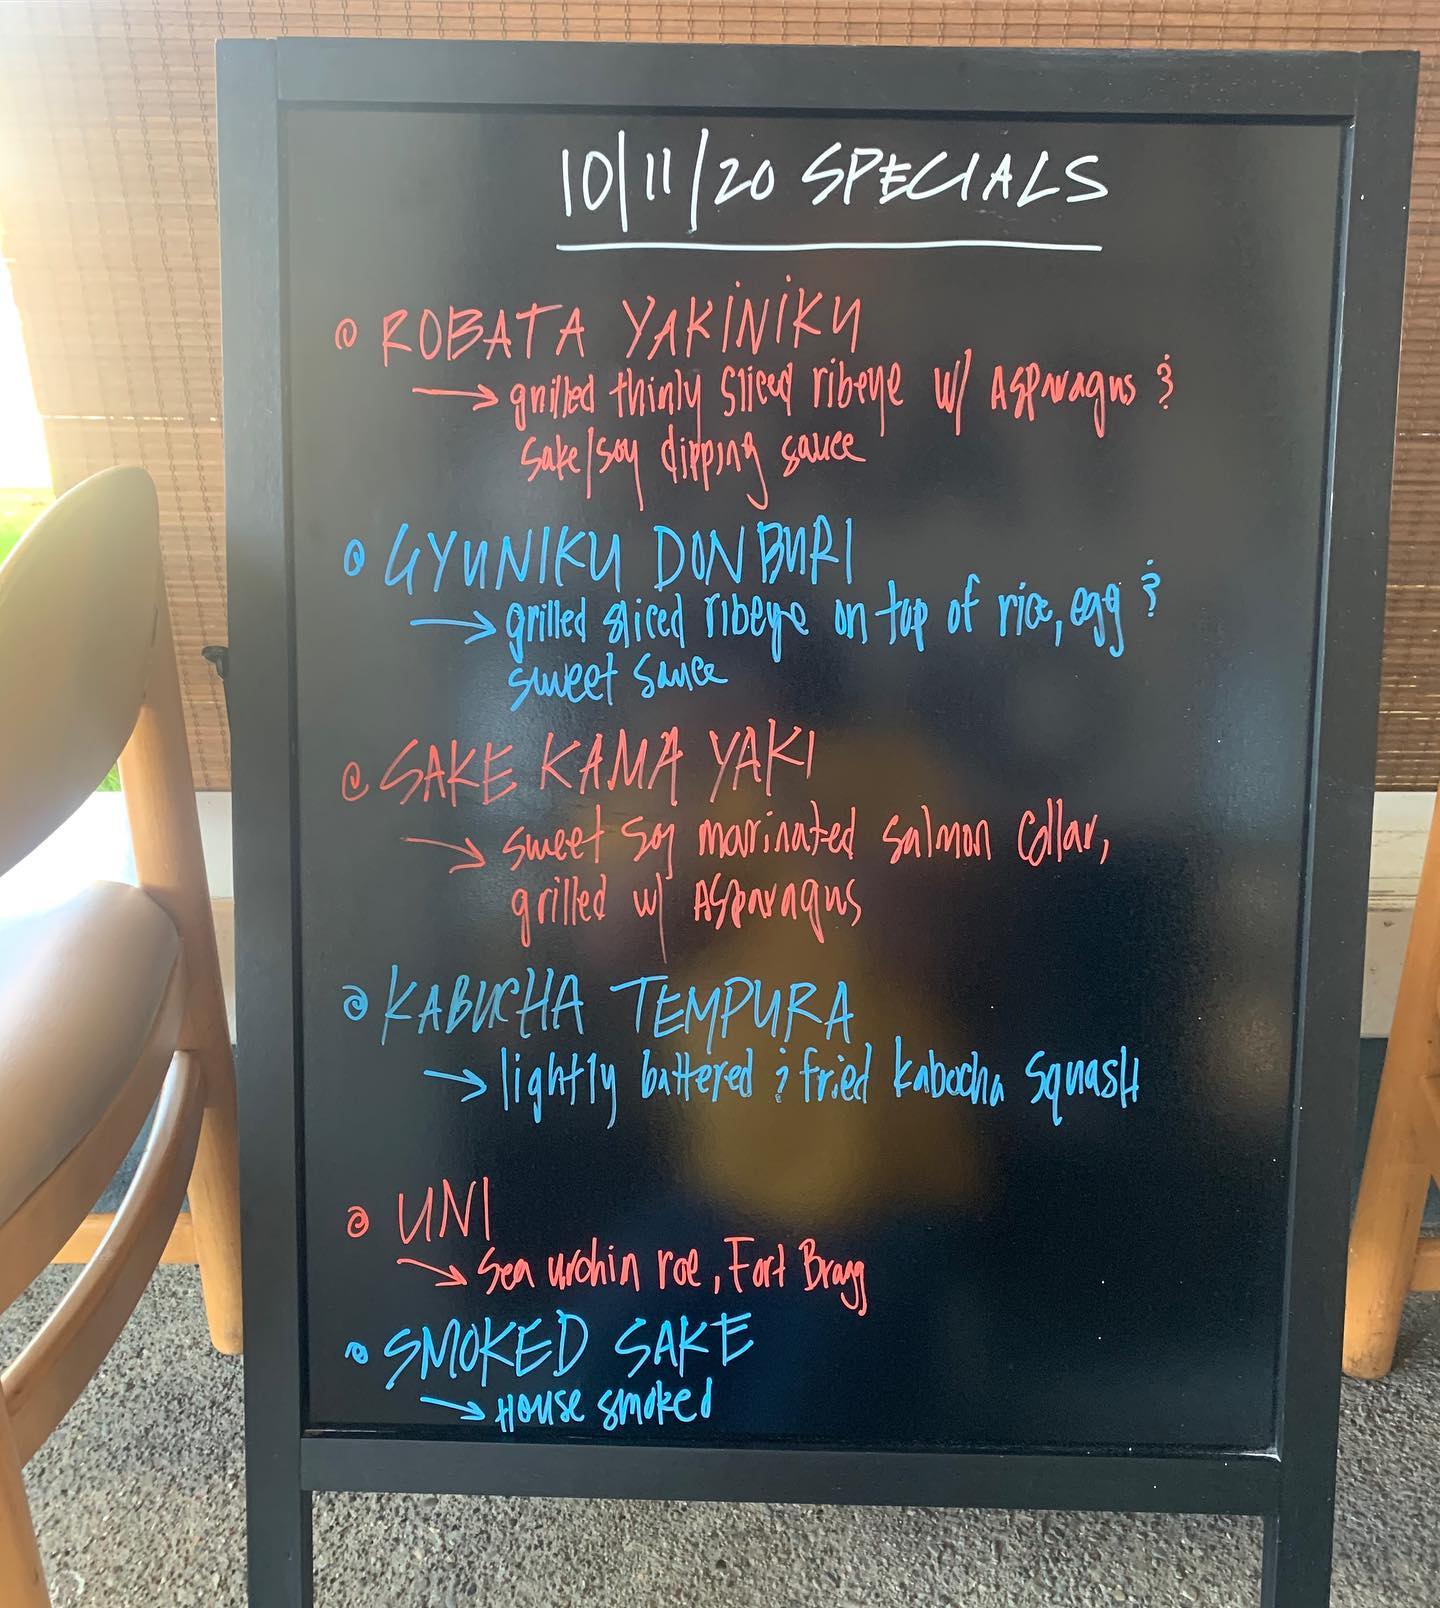 10/11/20 SPECIALS
ROBATA YAKINIKU
→ grilled thinly sliced ribeye w/ Asparagus &
sake/soy dipping sauce
GYUNIKU DONBURI
→ grilled sliced ribeye on top of rice, egg &
sweet sauce
SAKE KAMA YAKI
→ sweet soy marinated salmon collar,
grilled w/ Asparagus
KABUCHA TEMPURA
→ lightly battered & fried kabocha squash
UNI
→ sea urchin roe, Fort Bragg
SMOKED SAKE
→ House smoked